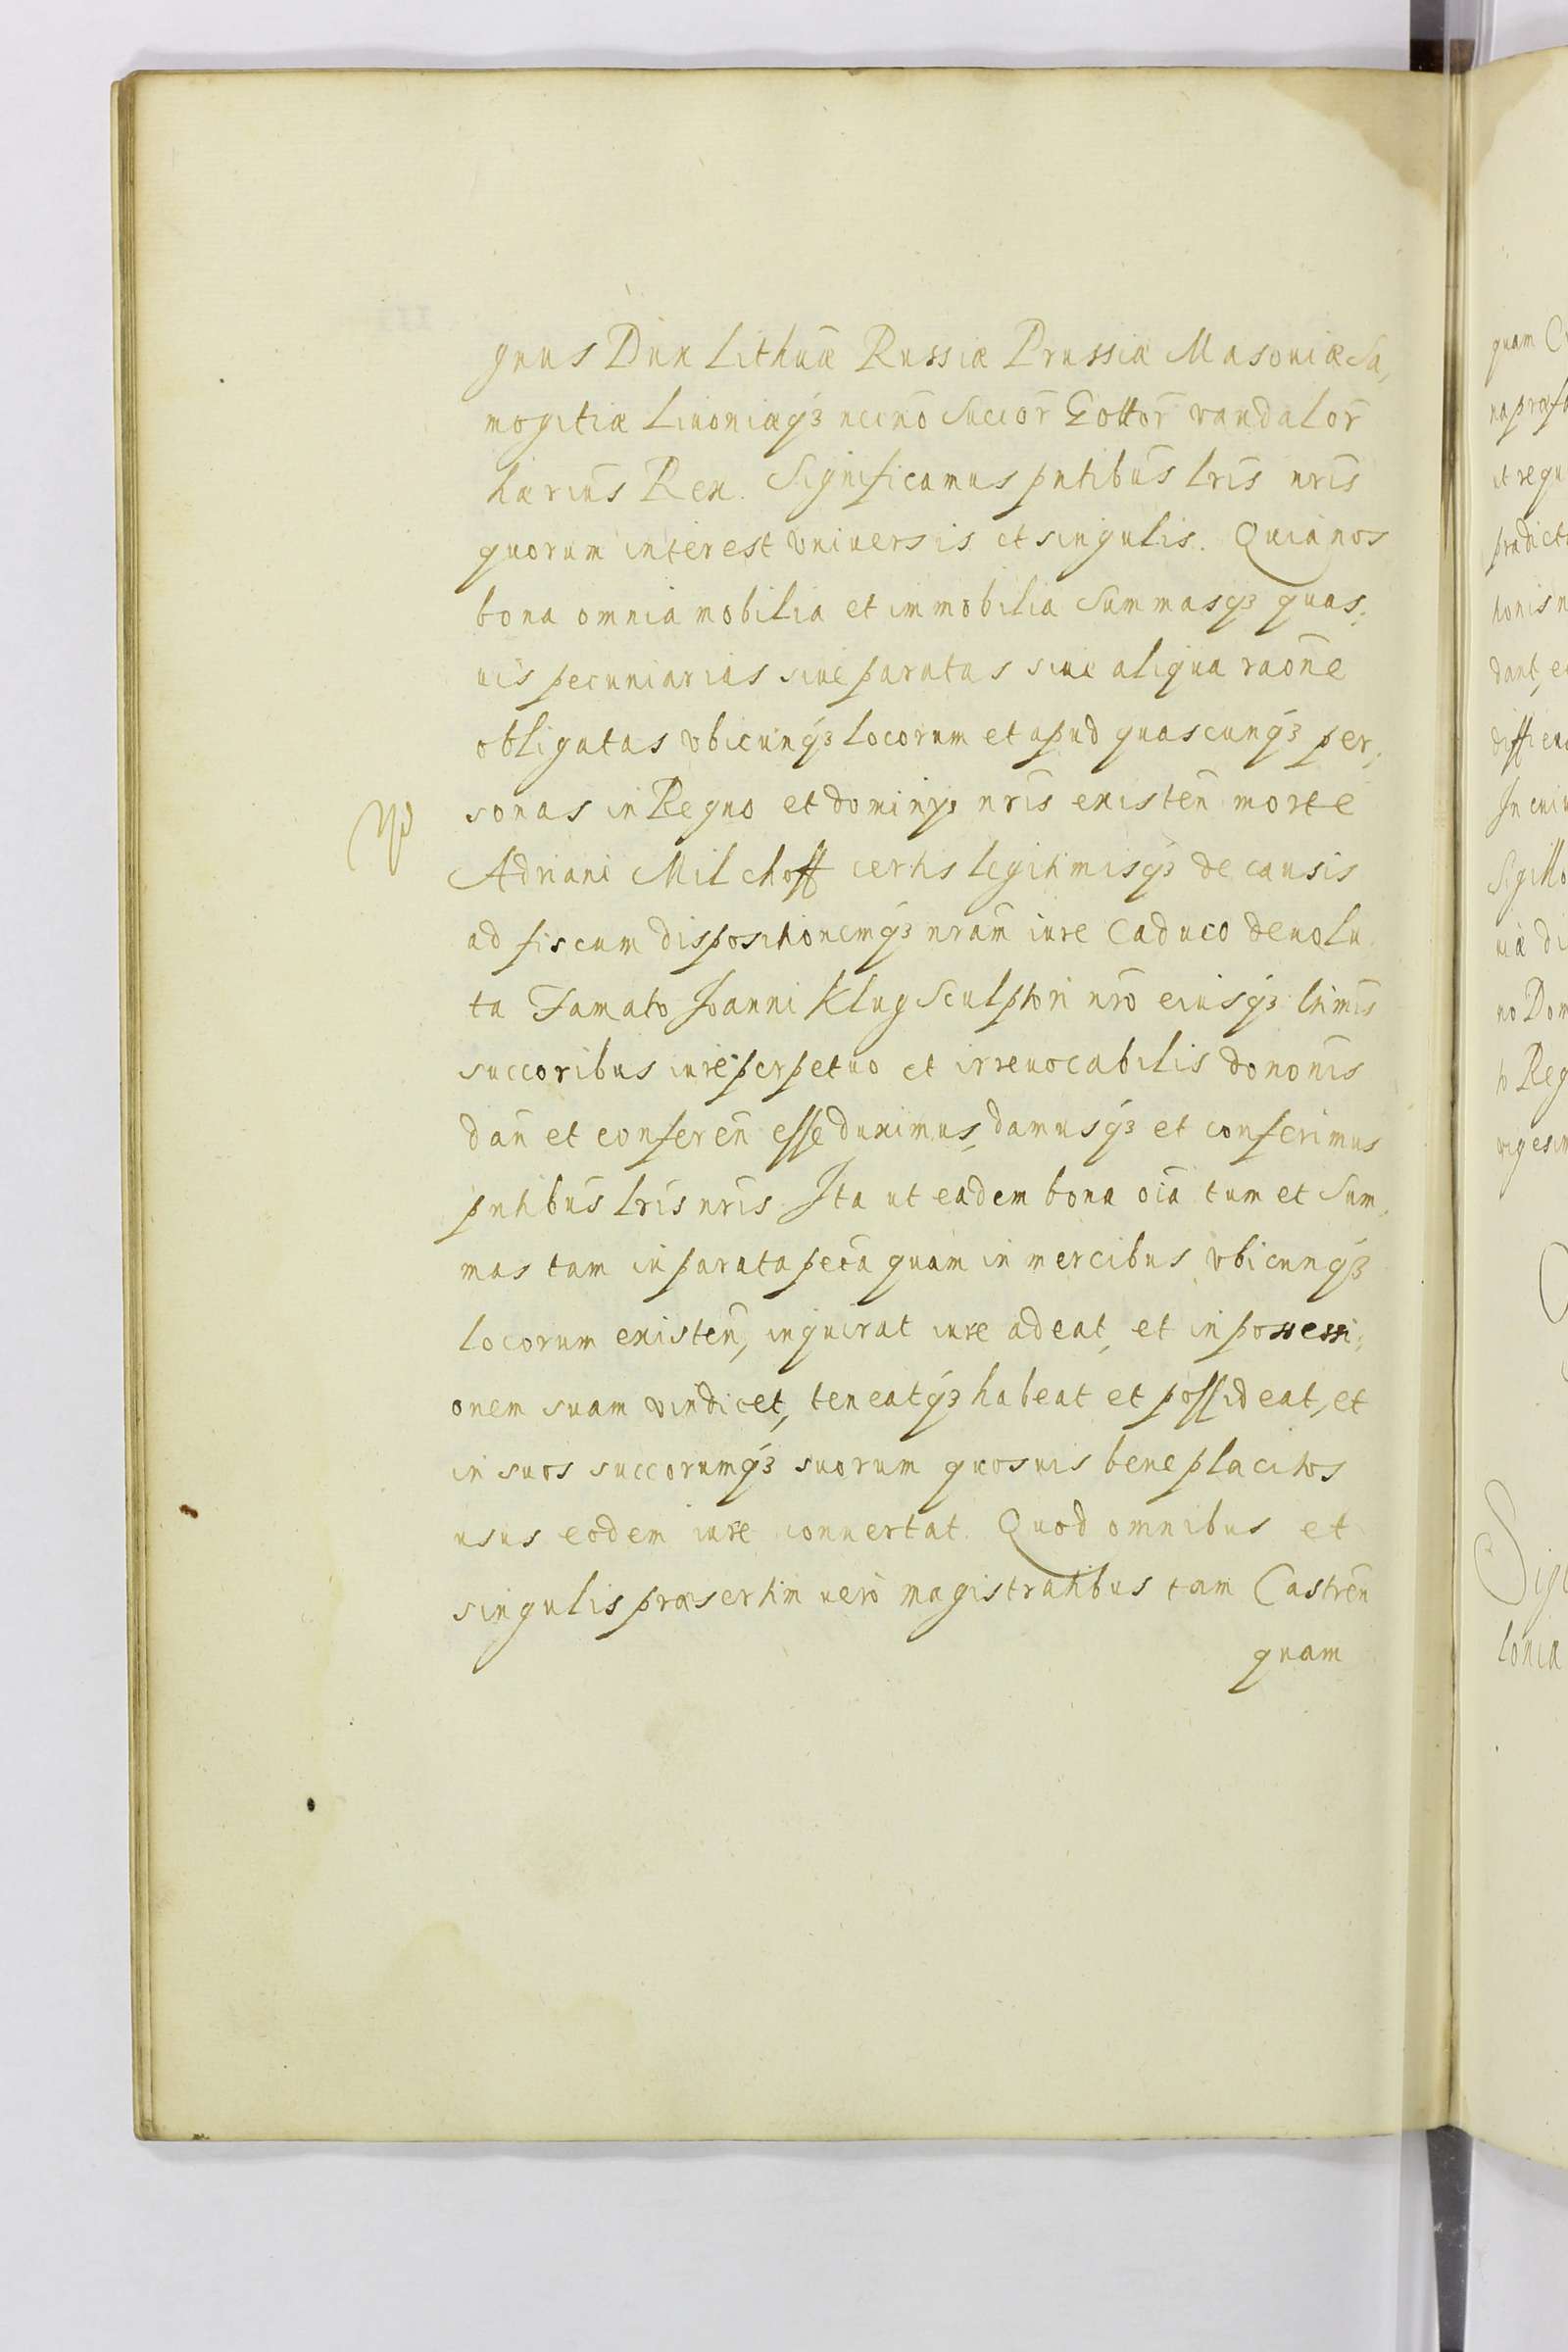 gnus Dux Lithuæ Russiæ Prussiæ Masouiæ Sa,
mogitiæ Liuoniæqꝫ necnō Suecor̄ Gottor̄ vandalor̄
hæriūs Rex. Significamus pntibūs lrīs nrīs
quorum interest vniuersis et singulis. Quia nos
bona omnia mobilia et immobilia Summasqꝫ quas,
uis pecuniarias siue paratas siue aliqua raōne
obligatas vbicunqꝫ locorum et apud quascunqꝫ per,
sonas in Regno et dominys nrīs existeñ morte
Adriani Milchoff certis legitimisqꝫ de causis
ad fiscum dispositionemqꝫ nrām iure Caduco deuolu
ta Famato Joanni Klug Sculptori nrō eiusqꝫ ltimīs
succoribus iure perpetuo et irreuocabilis dononīs
dañ et confereñ esse duximus, damusqꝫ et conferimus
pntibūs lrīs nrīs Ita ut eadem bona oīa tum et Sum,
mas tam in parata pecīa quam in mercibus vbicunqꝫ
locorum existeñ, inquirat iure adeat, et in possessi,
onem suam vindicet, teneatqꝫ habeat et possideat, et
in suos succorumqꝫ suorum quosuis beneplacitos
usus eodem iure conuertat. Quod omnibus et
singulis præsertim uero magistratibus tam Castreñ
quam